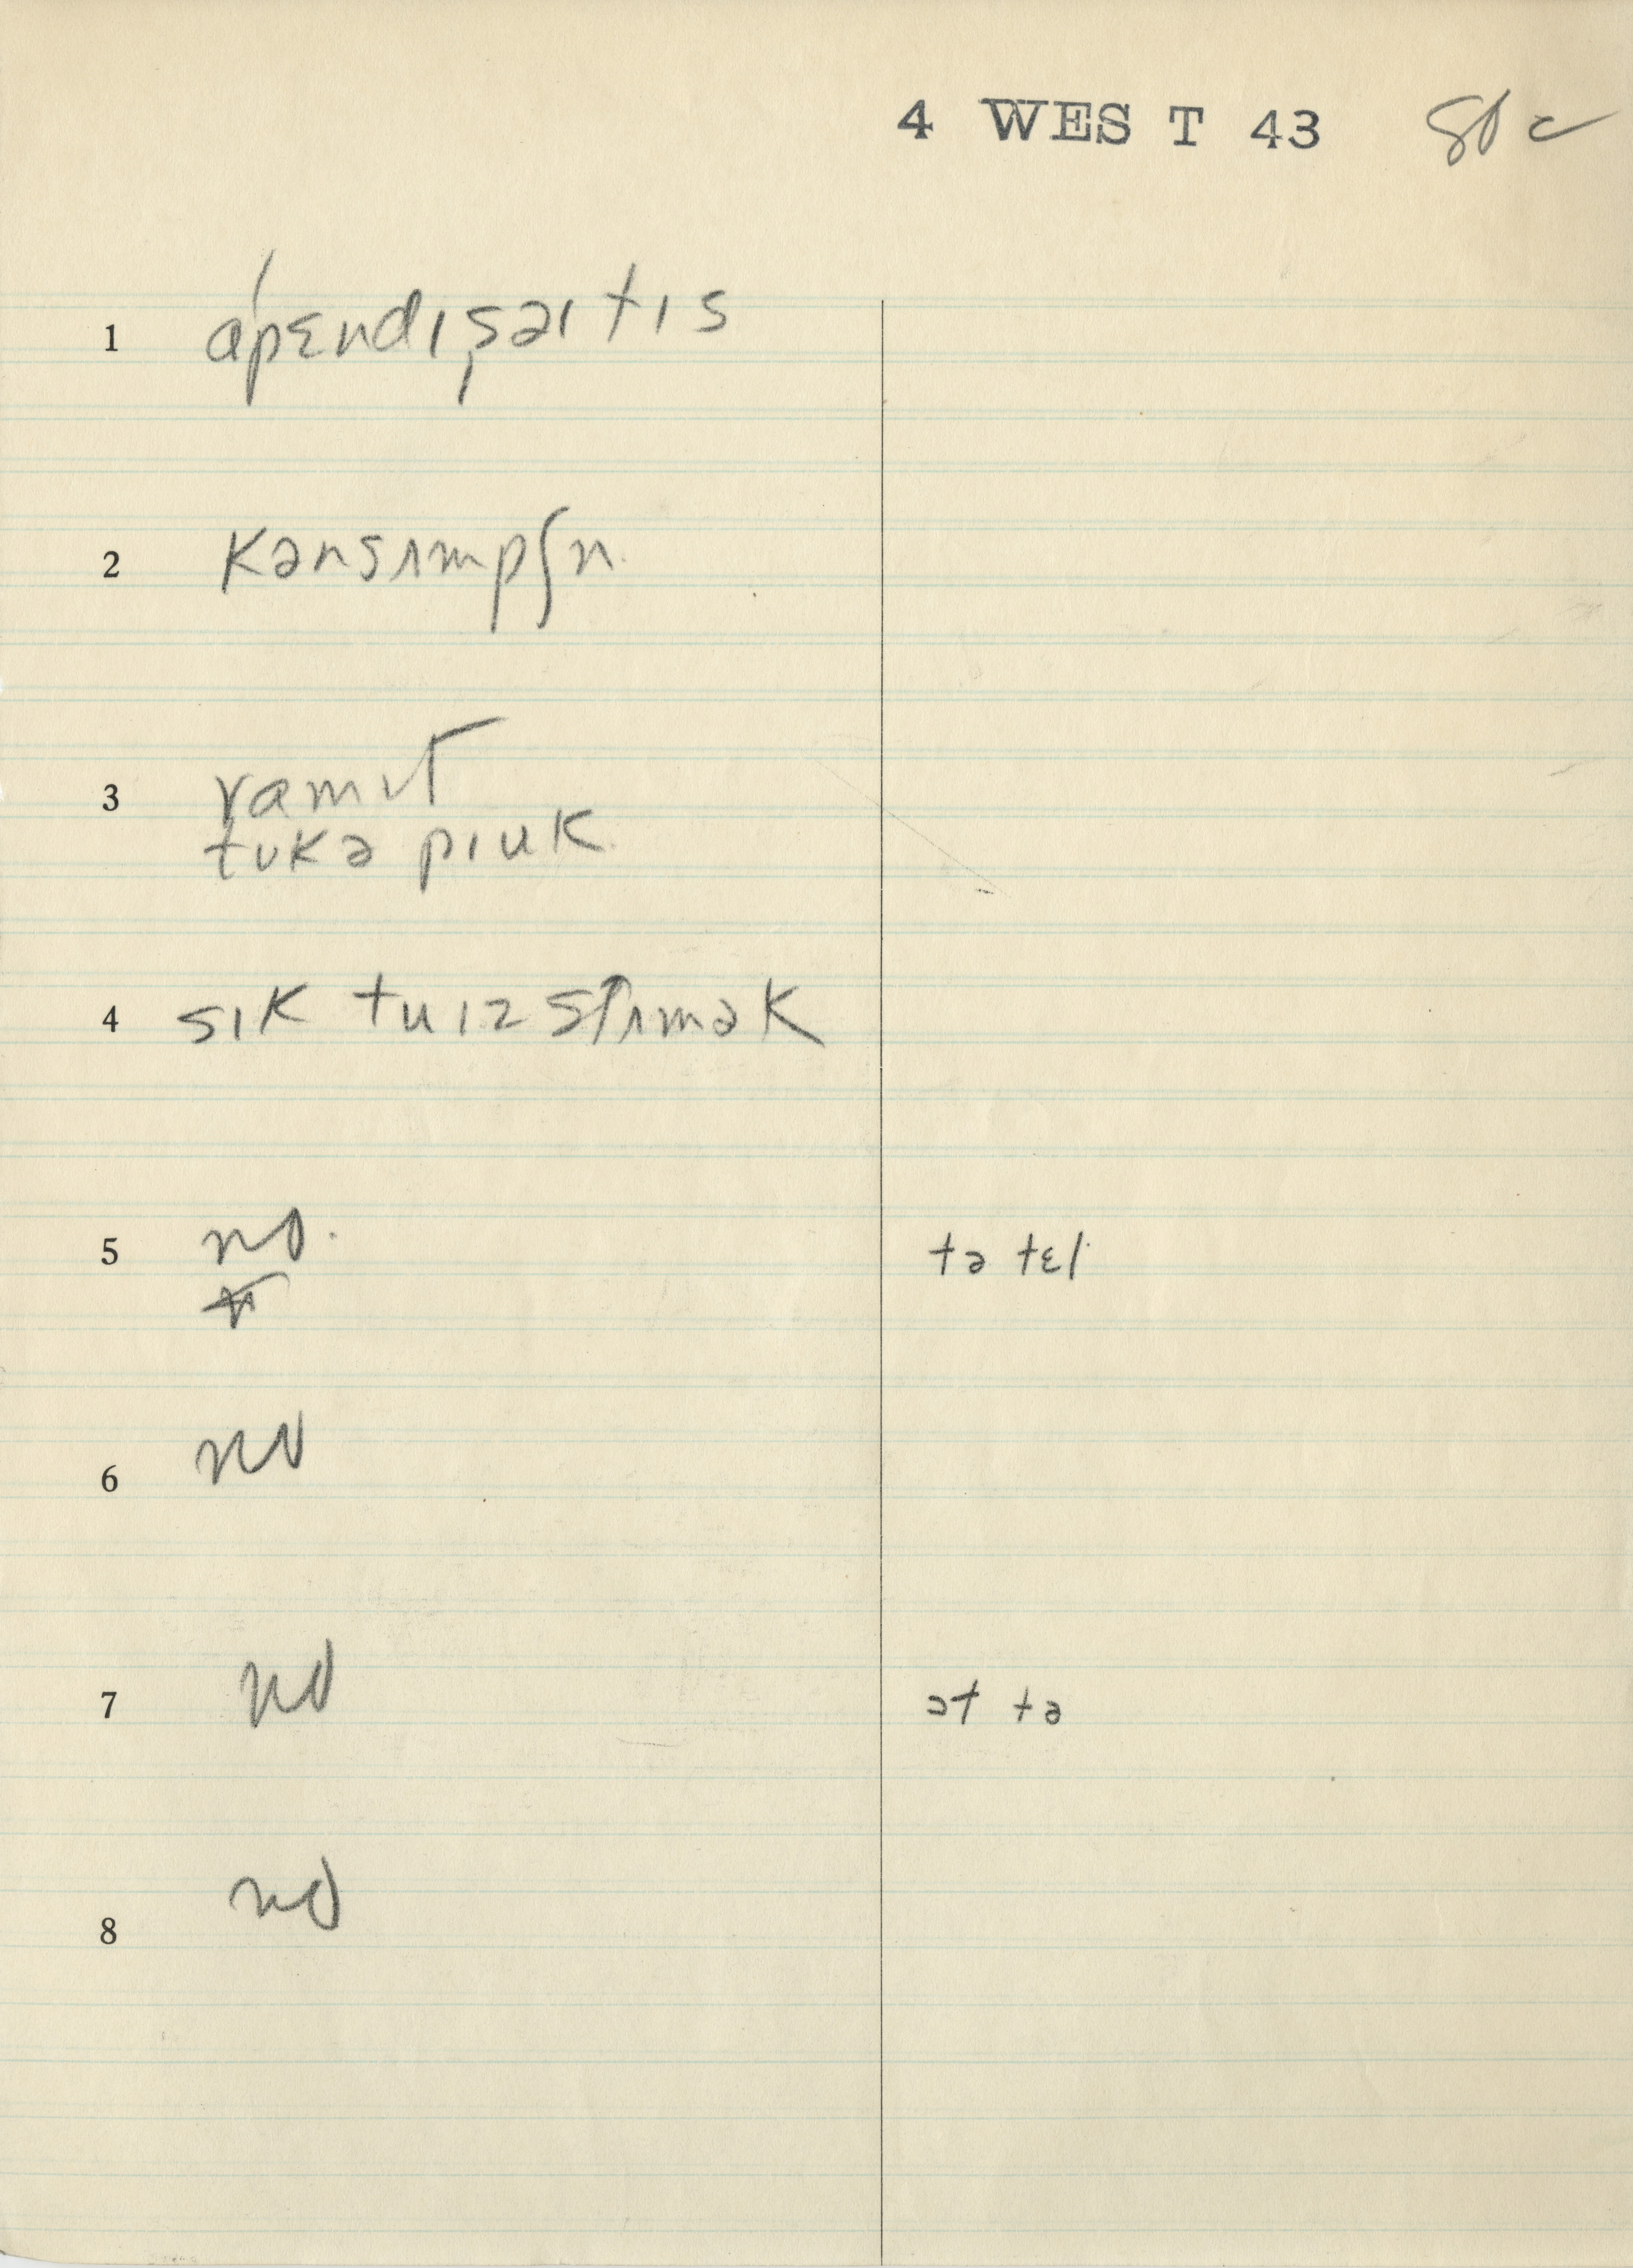 4 WEST 43
1 ápɛndɪˌsəɪtɪs
2 kənsʌmpʃn
3 vɑmɪt
tʊkə pɪuk
4 sɪk tu ɪz stʌmək
5 no. tə tɛl
6 no
7 no ət tə
8 no